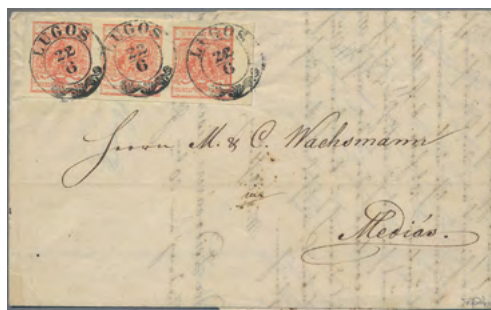 LUGOS
22
6
LUGOS
22
6
LUGOS
22
6
Herrn M. & C. Wachsmann
in
Mediás.